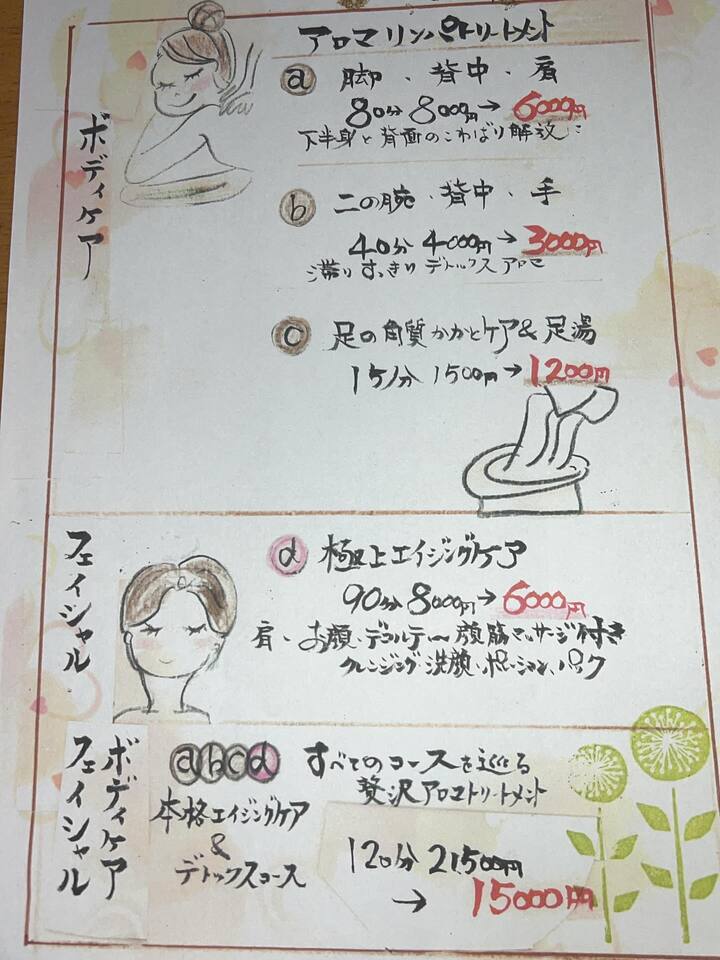 ボディケア
アロマリンパトリートメント
a 脚、背中、肩
80分 8000円→6000円
下半身と背面のこわばり解放に
b 二の腕、背中、手
40分 4000円→3000円
滞りすっきり デトックスアロマ
c 足の角質かかとケア&足湯
15分 1500円→1200円
フェイシャル
d 極上エイジングケア
90分 8000円→6000円
肩、お顔、デコルテ〜顔筋マッサージ付き
クレンジング、洗顔、パック
ボディケア
フェイシャル
abcd すべてのコースを巡る
贅沢アロマトリートメント
本格エイジングケア
&
デトックスコース
120分 21500円
→15000円